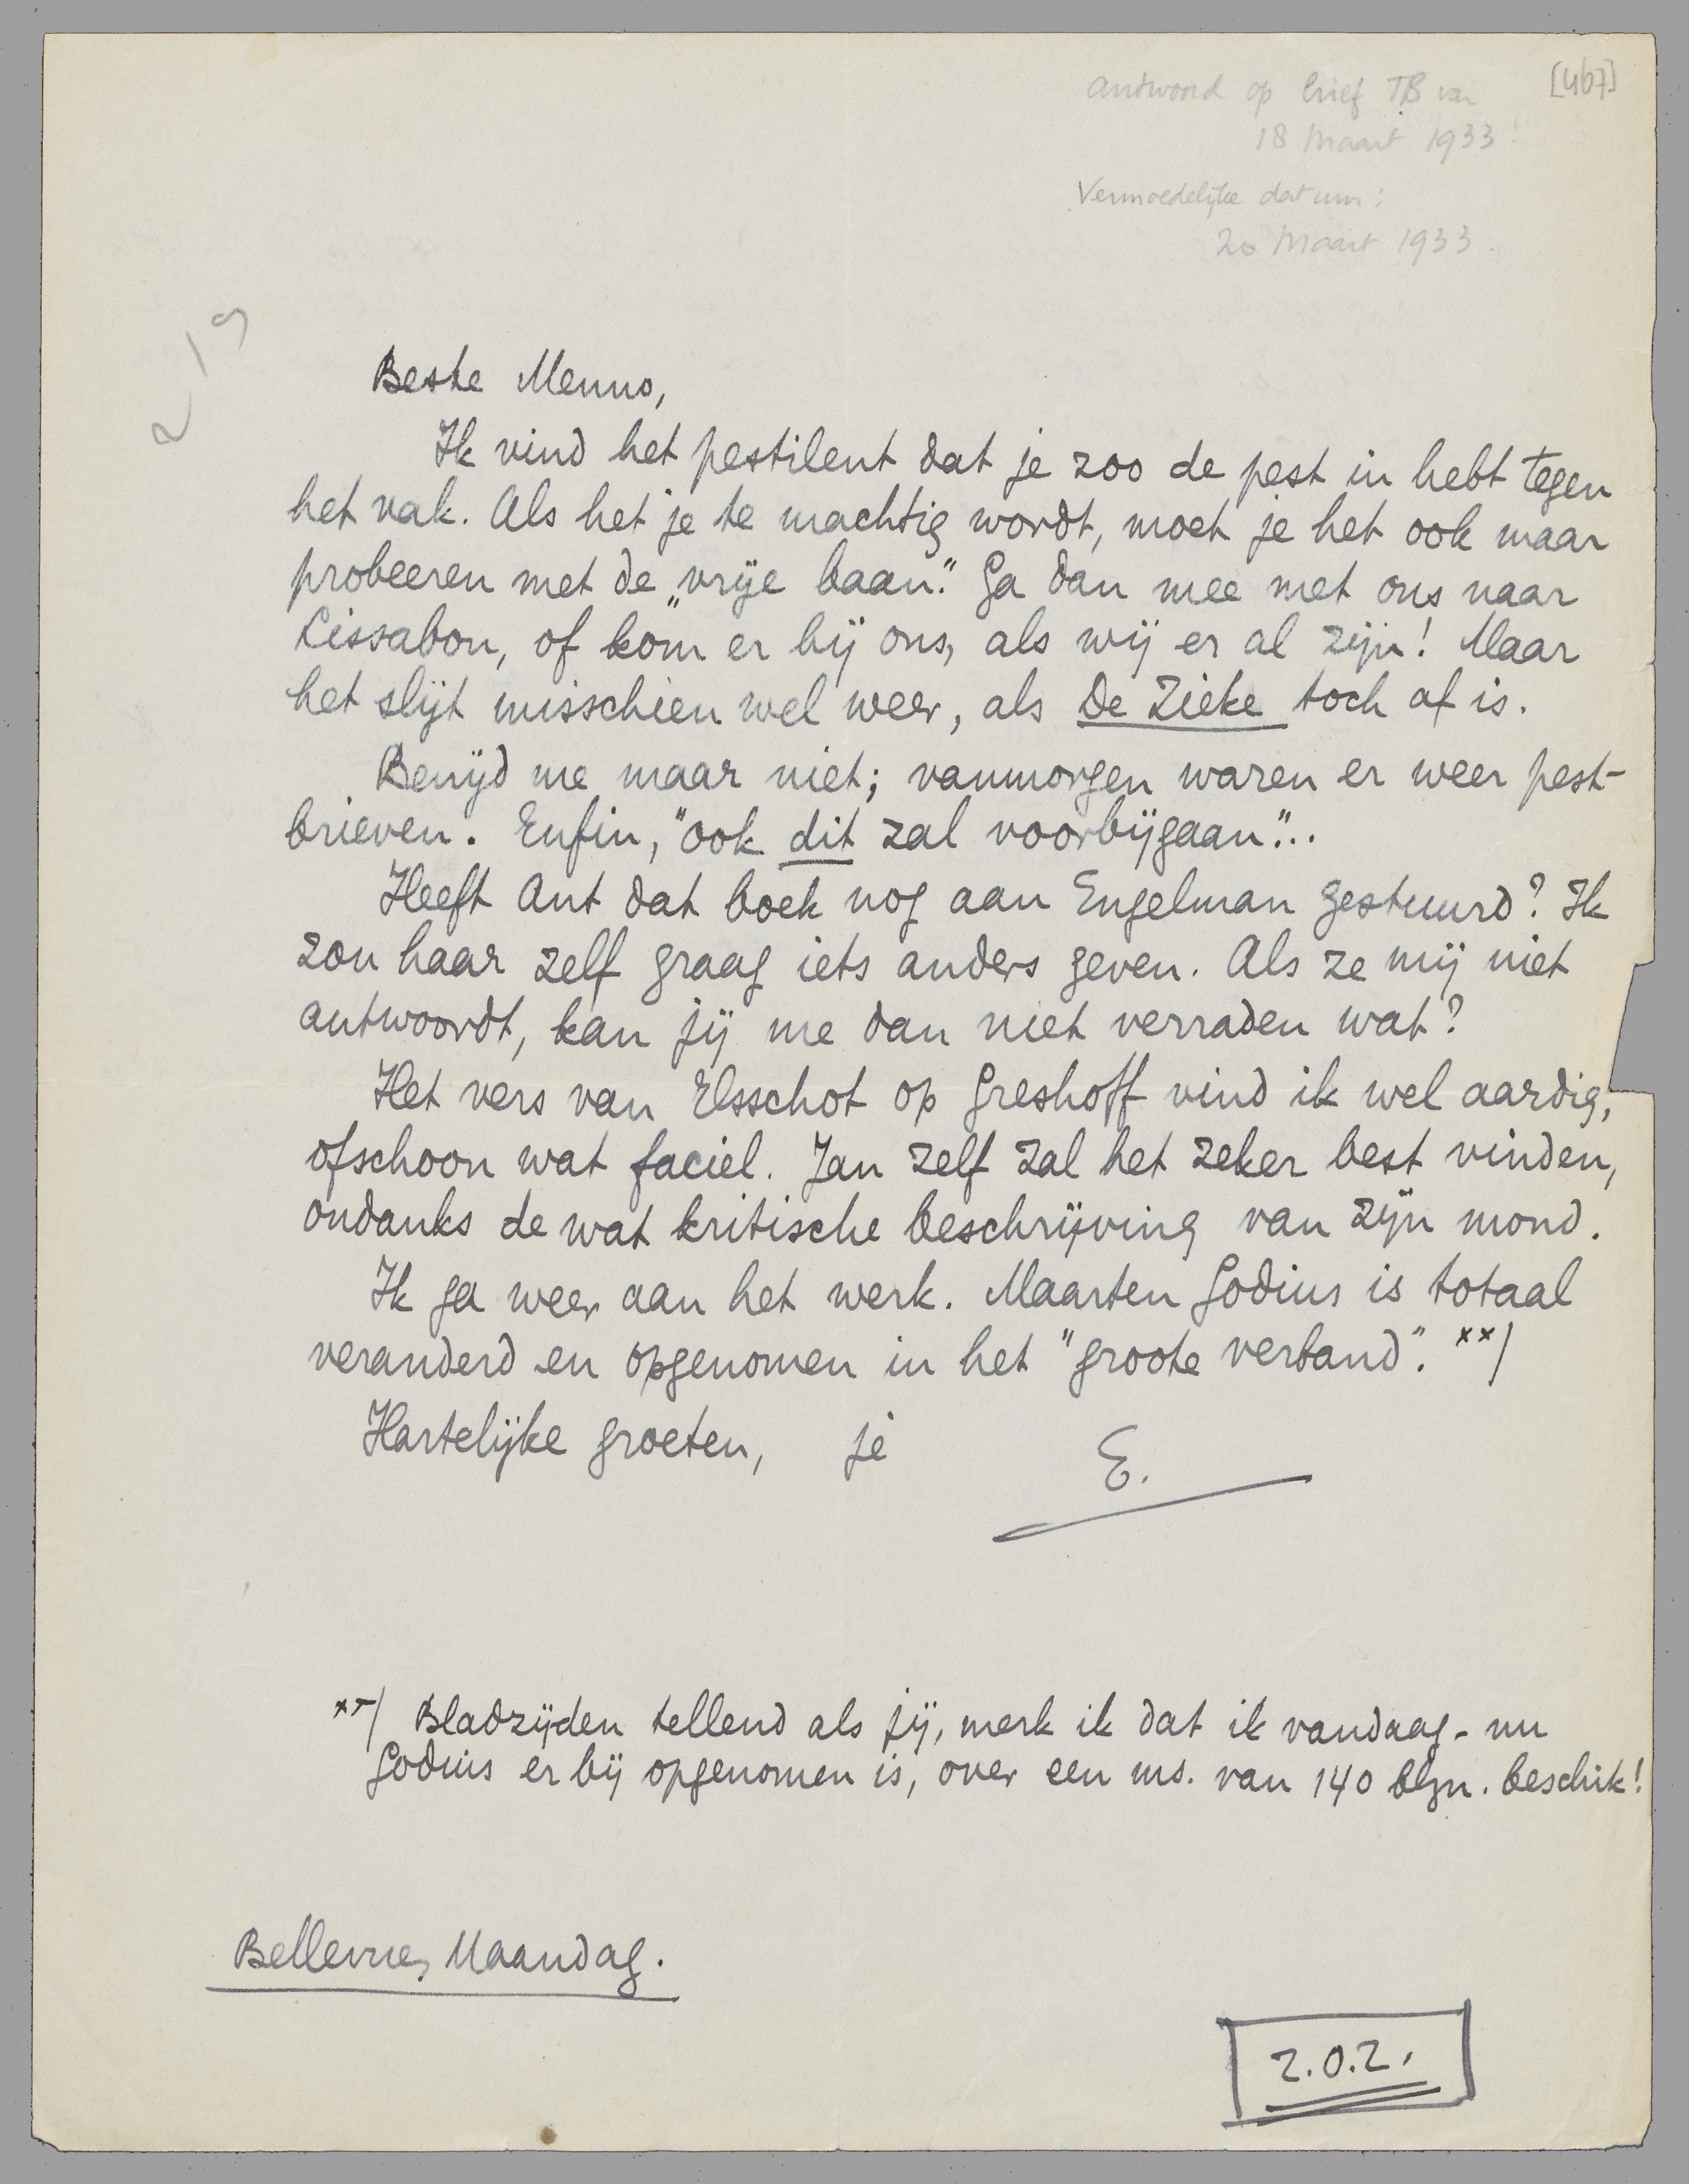 [467]
Antwoord op brief TB van
18 Maart 1933
Vermoedelijke datum:
20 Maart 1933.
219
Beste Menno,
Ik vind het pestilent dat je zoo de pest in hebt tegen
het vak. Als het je te machtig wordt, moet je het ook maar
probeeren met de „vrije baan." Ga dan mee met ons naar
Lissabon, of kom er bij ons, als wij er al zijn! Maar
het slijt misschien wel weer, als De Zieke toch af is.
Benijd me maar niet; vanmorgen waren er weer pest-
brieven. Enfin, "ook dit zal voorbijgaan"...
Heeft Ant dat boek nog aan Engelman gestuurd? Ik
zou haar zelf graag iets anders geven. Als ze mij niet
antwoordt, kan jij me dan niet verraden wat?
Het vers van Elsschot op Greshoff vind ik wel aardig,
ofschoon wat faciel. Jan zelf zal het zeker best vinden,
ondanks de wat kritische beschrijving van zijn mond.
Ik ga weer aan het werk. Maarten Godius is totaal
veranderd en opgenomen in het "groote verband". xx/
Hartelijke groeten, je E.
xx/ Bladzijden tellend als jij, merk ik dat ik vandaag - nu
Godius er bij opgenomen is, over een ms. van 140 blzn. beschik!
Bellevue, Maandag.
Z.O.Z.